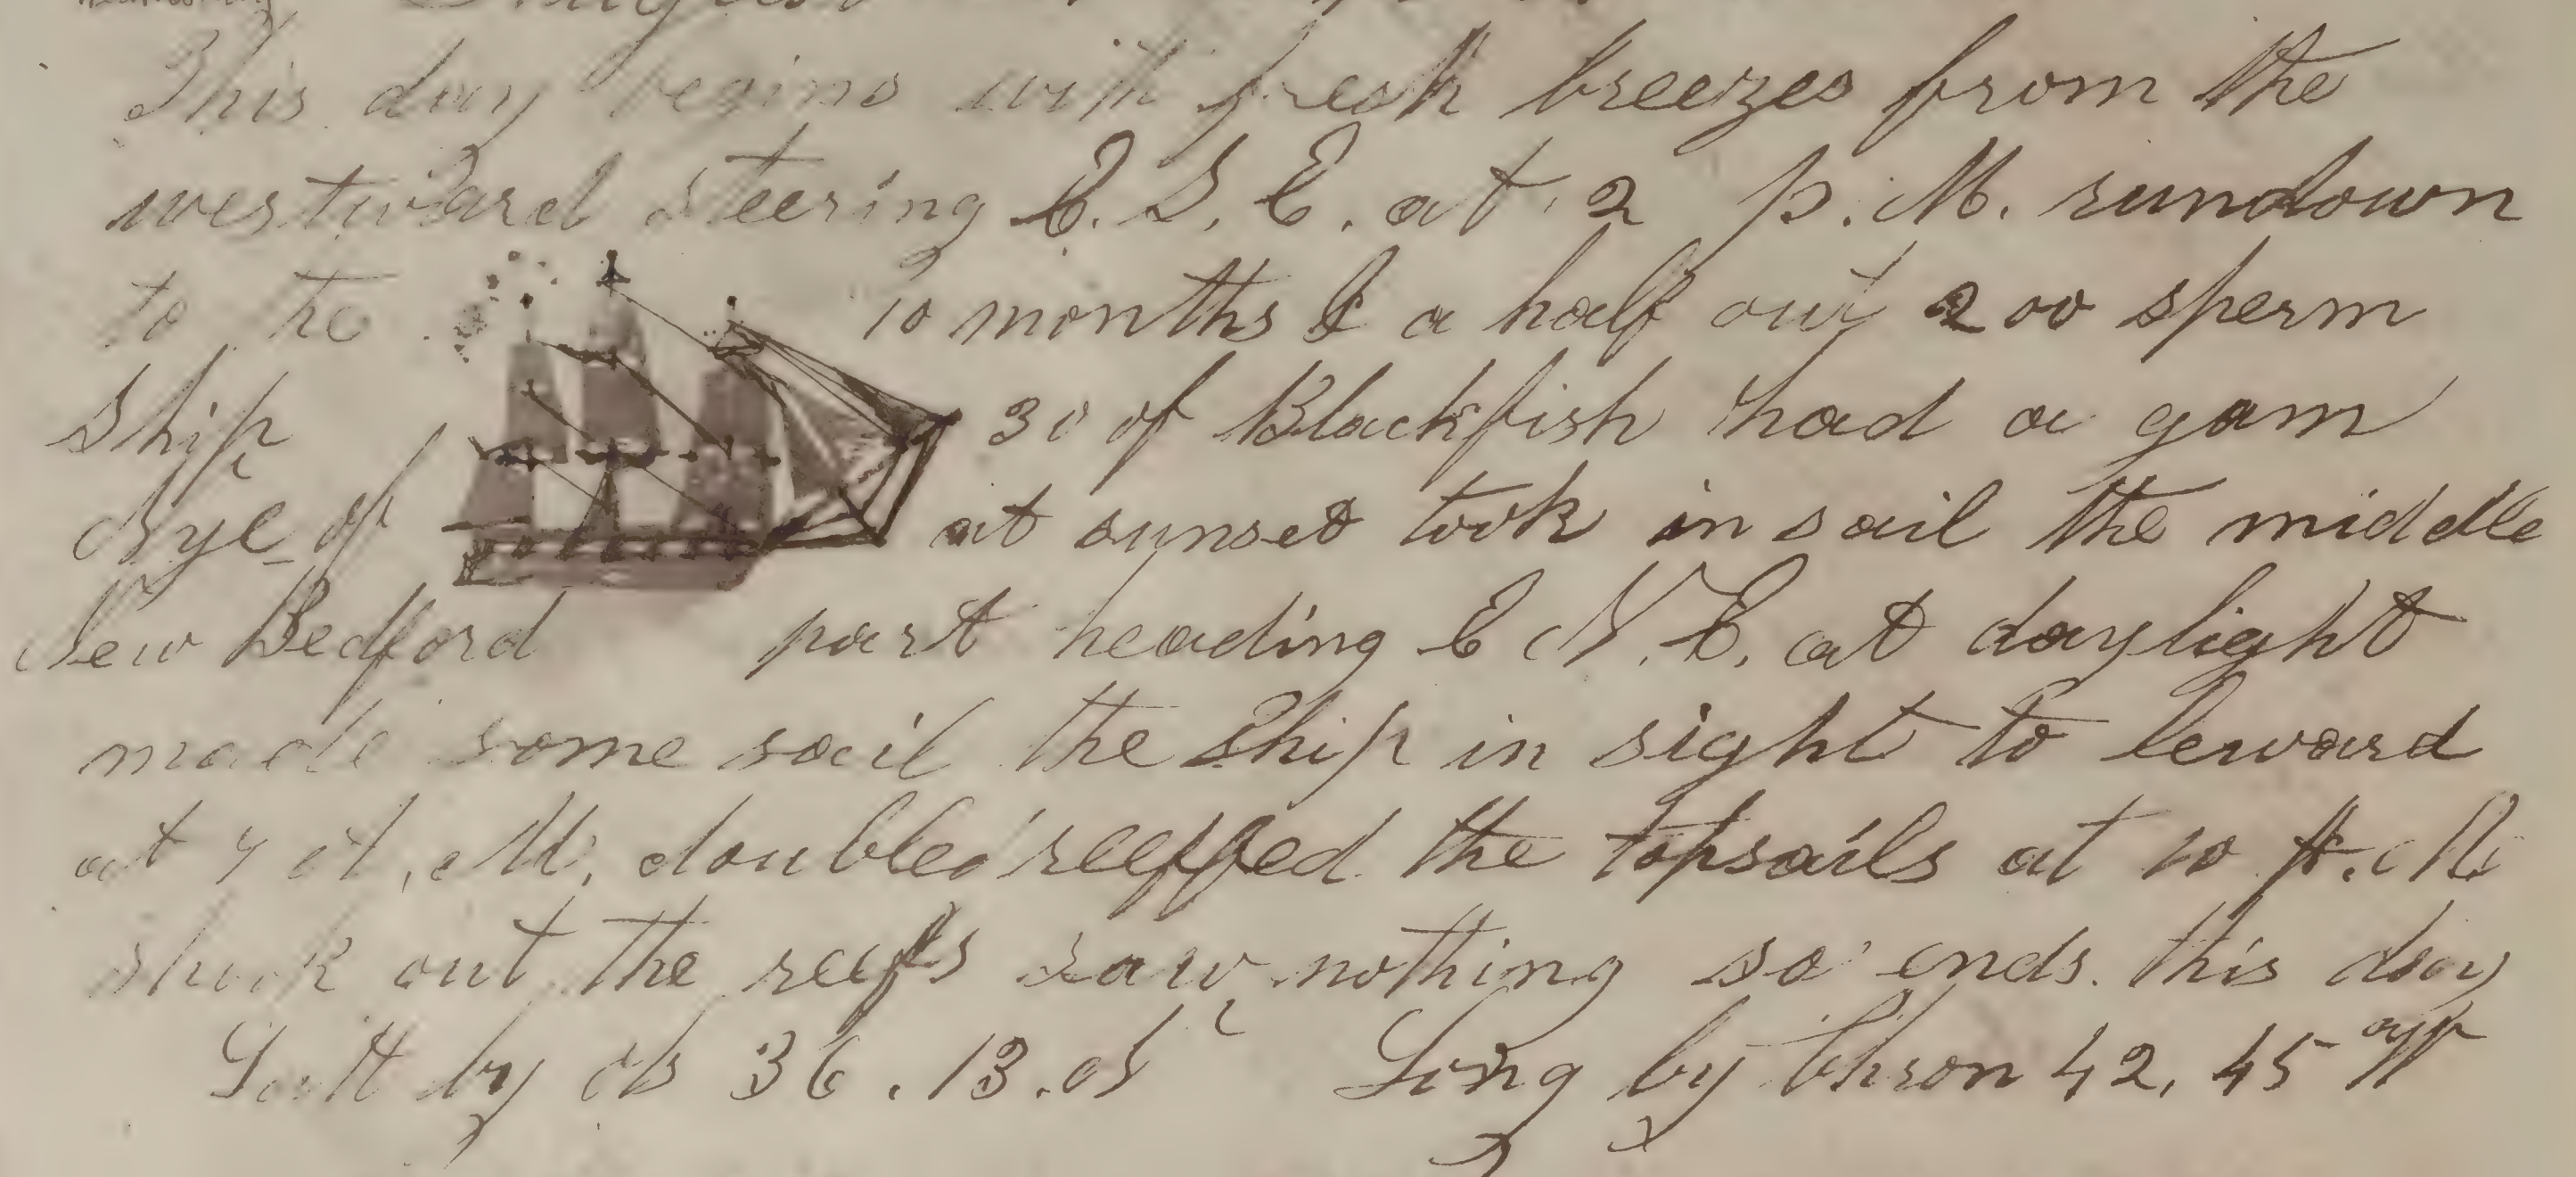 This day begins with fresh breezes from the
westward steering E. S. E. at 2 p. M. rundown
to the 10 months & a half out 200 sperm
Ship 30 of Blackfish had a gam
Nye of at sunset took in sail the middle
New Bedford part heading E N. E. at daylight
made some sail the ship in sight to leward
at 7 A. M. doubled reeffed the topsails at 10 A. M.
shook out the reefs saw nothing so ends this day
Latt by ob 36. 13. Long by Chron 42, 45